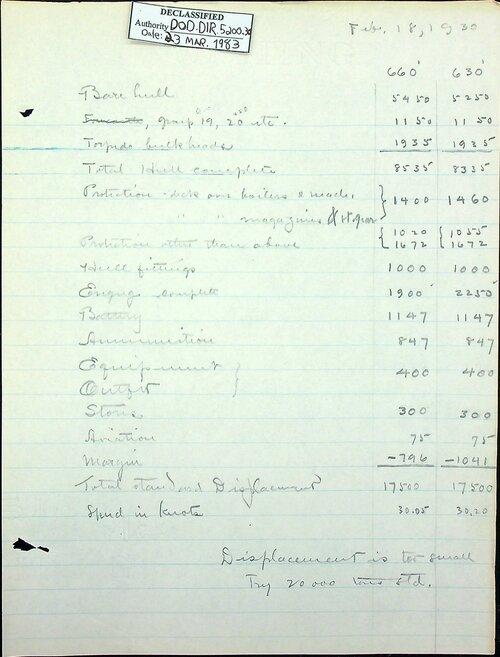 DECLASSIFIED
Authority DOD.DIR.5200.30
Date: 23 MAR. 1983
Feb. 18, 1930
660' 630'
Bare hull 5450 5250
, group 19, 20 etc. 1150 1150
Torpedo bulkheads 1935 1935
Total Hull complete 8535 8335
Protection - deck over boilers & mach. 1400 1460
" " magazines & st. gear 1020 1055
Protection other than above 1672 1672
Hull fittings 1000 1000
Engng. complete 1900 2250
Battery 1147 1147
Ammunition 847 847
Equipment
Outfit 400 400
Stores 300 300
Aviation 75 75
Margin -796 -1041
Total standard Displacement 17500 17500
Speed in knots 30.05 30.20
Displacement is too small
Try 20000 tons std.